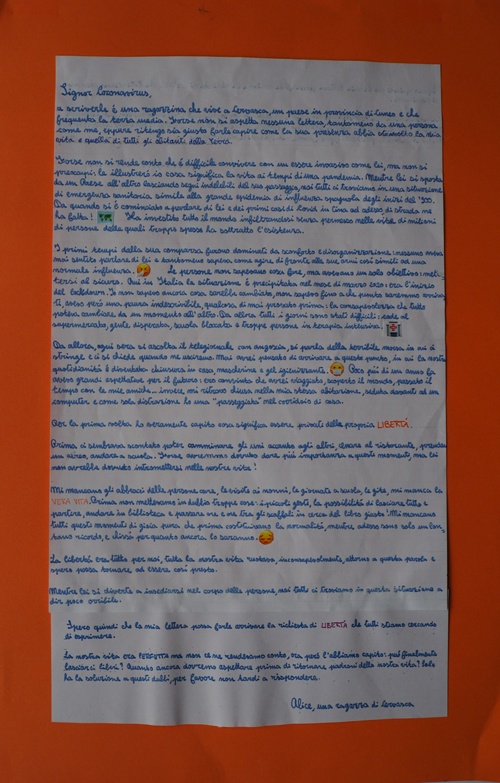 Signor Coronavirus,
a scriverle è una ragazzina che vive a Cervasca, un paese in provincia di Cuneo e che
frequenta la terza media. Forse non si aspetta nessuna lettera, tantomeno da una persona
come me, eppure ritengo sia giusto farle capire come la sua presenza abbia stravolto la mia
vita e quella di tutti gli abitanti della Terra.
Forse non si rende conto che è difficile convivere con un essere invasivo come lei, ma non si
preoccupi: le illustrerò io cosa significa la vita ai tempi di una pandemia. Mentre lei si sposta
da un Paese all'altro lasciando segni indelebili del suo passaggio, noi tutti ci troviamo in una situazione
di emergenza sanitaria simile alla grande epidemia di influenza spagnola degli inizi del '900.
Da quando si è cominciato a parlare di lei e dei primi casi di Covid in Cina ad adesso di strada ne
ha fatta! Ha insidiato tutto il mondo infiltrandosi senza permesso nelle vite di milioni
di persone dalla quali troppo spesso ha sottratto l'esistenza.
I primi tempi dalla sua comparsa furono dominati da sconforto e disorganizzazione: nessuno aveva
mai sentito parlare di lei e tantomeno sapeva come agire di fronte alle sue armi così simili ad una
normale influenza. Le persone non sapevano cosa fare, ma avevano un solo obiettivo: met-
tersi al sicuro. Qui in Italia la situazione è precipitata nel mese di marzo 2020: era l'inizio
del lockdown. Io non sapevo ancora cosa sarebbe cambiato, non sapevo fino a che punto saremmo arriva-
ti, avevo però una paura indescrivibile, qualcosa di mai provato prima: la consapevolezza che tutto
poteva cambiare da un momento all'altro. Da allora tutti i giorni sono stati difficili: code al
supermercato, gente disperata, scuola bloccata e troppe persone in terapia intensiva.
Da allora, ogni sera si ascolta il telegiornale con angoscia, si parla della terribile morsa in cui ci
stringe e ci si chiede quando ne usciremo. Mai avrei pensato di arrivare a questo punto, in cui la nostra
quotidianità è diventata chiusura in casa, mascherine e gel igienizzante. Poco più di un anno fa
avevo grandi aspettative per il futuro: ero convinta che avrei viaggiato, scoperto il mondo, passato il
tempo con le mie amiche... invece, mi ritrovo chiusa nella mia stessa abitazione, seduta davanti ad un
computer e come sola distrazione ho una "passeggiata" nel corridoio di casa.
Per la prima volta ho veramente capito cosa significa essere privati della propria LIBERTÀ.
Prima ci sembrava scontato poter camminare gli uni accanto agli altri, cenare al ristorante, prendere
un aereo, andare a scuola. Forse avremmo dovuto dare più importanza a questi momenti, ma lei
non avrebbe dovuto intromettersi nelle nostre vite!
Mi mancano gli abbracci delle persone care, le visite ai nonni, le giornate a scuola, le gite, mi manca la
VERA VITA. Prima non mettevamo in dubbio troppe cose: i piccoli gesti, la possibilità di lasciare tutto e
partire, andare in biblioteca e passare ore e ore tra gli scaffali in cerca del libro giusto! Mi mancano
tutti questi momenti di gioia pura che prima costituivano la normalità, mentre adesso sono solo un lon-
tano ricordo, e chissà per quanto ancora lo saranno.
La libertà era tutto per noi, tutta la nostra vita ruotava, inconsapevolmente, attorno a questa parola e
spero possa tornare ad essere così presto.
Mentre lei si diverte a insediarsi nel corpo delle persone, noi tutti ci troviamo in questa situazione a
dir poco orribile.
Spero quindi che la mia lettera possa farle arrivare la richiesta di LIBERTÀ che tutti stiamo cercando
di esprimere.
La nostra vita era PERFETTA ma non ce ne rendevamo conto, ora però l'abbiamo capito: può finalmente
lasciarci liberi? Quanto ancora dovremo aspettare prima di ritornare padroni della nostra vita? Solo lei
ha la soluzione a questi dubbi, per favore non tardi a rispondere.
Alice, una ragazza di Cervasca